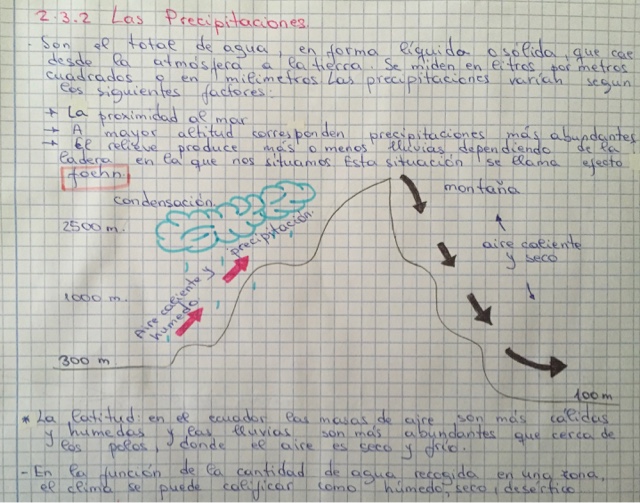 2.3.2 Las Precipitaciones
. Son el total de agua, en forma líquida o sólida, que cae
desde la atmósfera a la tierra. Se miden en litros por metros
cuadrados o en milímetros. Las precipitaciones varían según
los siguientes factores:
→ La proximidad al mar
→ A mayor altitud corresponden precipitaciones más abundantes
→ El relieve produce más o menos lluvias dependiendo de la
ladera en la que nos situamos Esta situación se llama efecto
foehn.
condensación.
montaña
precipitación.
2500 m.
aire caliente
y seco
Aire caliente y
húmedo
1000 m.
300 m.
100 m
* La latitud: en el ecuador las masas de aire son más cálidas
y húmedas y las lluvias son más abundantes que cerca de
los polos, donde el aire es seco y frío.
- En la función de la cantidad de agua recogida en una zona,
el clima se puede calificar como húmedo, seco, desértico...